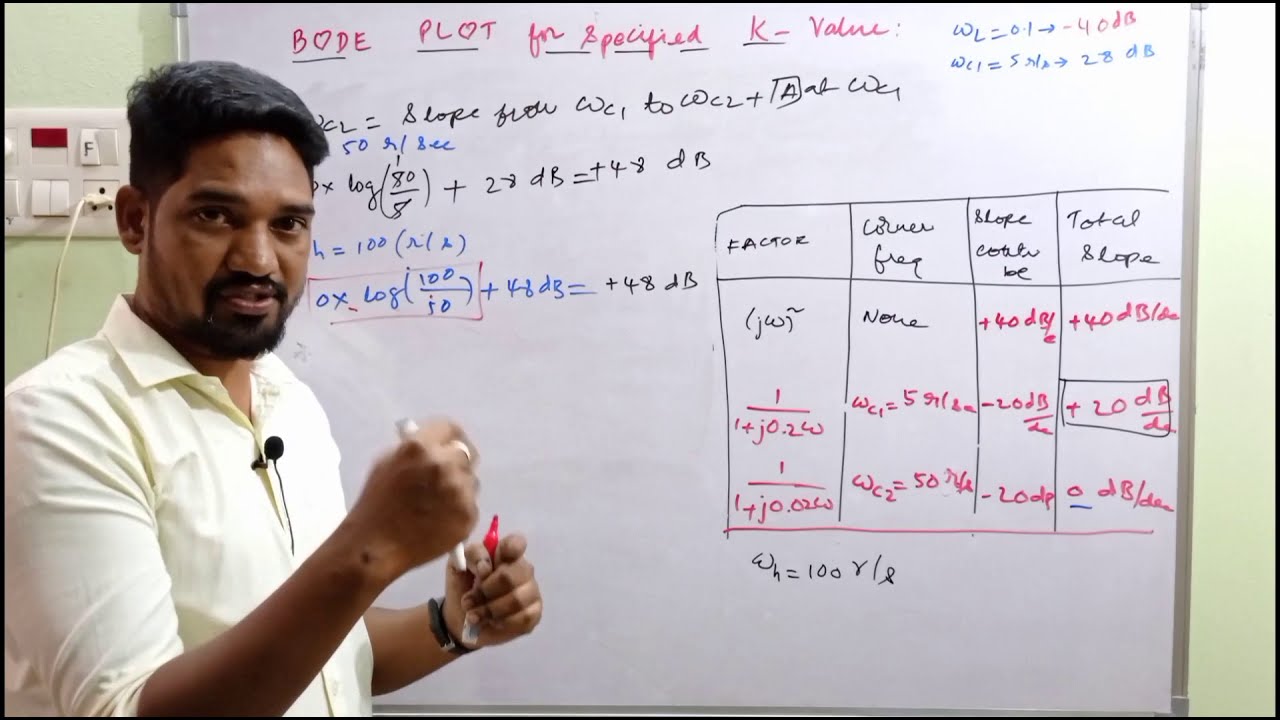 BODE PLOT for Specified K- Value:
ωL=0.1→ -40dB
ωC1=5 r/s→ 28 dB
ωC2 = Slope from ωC1 to ωC2 + A at ωC1
50 r/sec
0× log(80/5) + 28 dB=+48 dB
h = 100 (r/s)
0× log(100/50) + 48 dB= +48 dB
FACTOR
Corner freq
Slope contri be
Total Slope
(jω)²
None
+40dB/e
+40dB/de
1/1+j0.2ω
ωC1=5 r/s
-20dB/de
+20 dB/de
1/1+j0.02ω
ωC2=50 r/s
-20dB
0 dB/dec
ωh=100 r/s
F